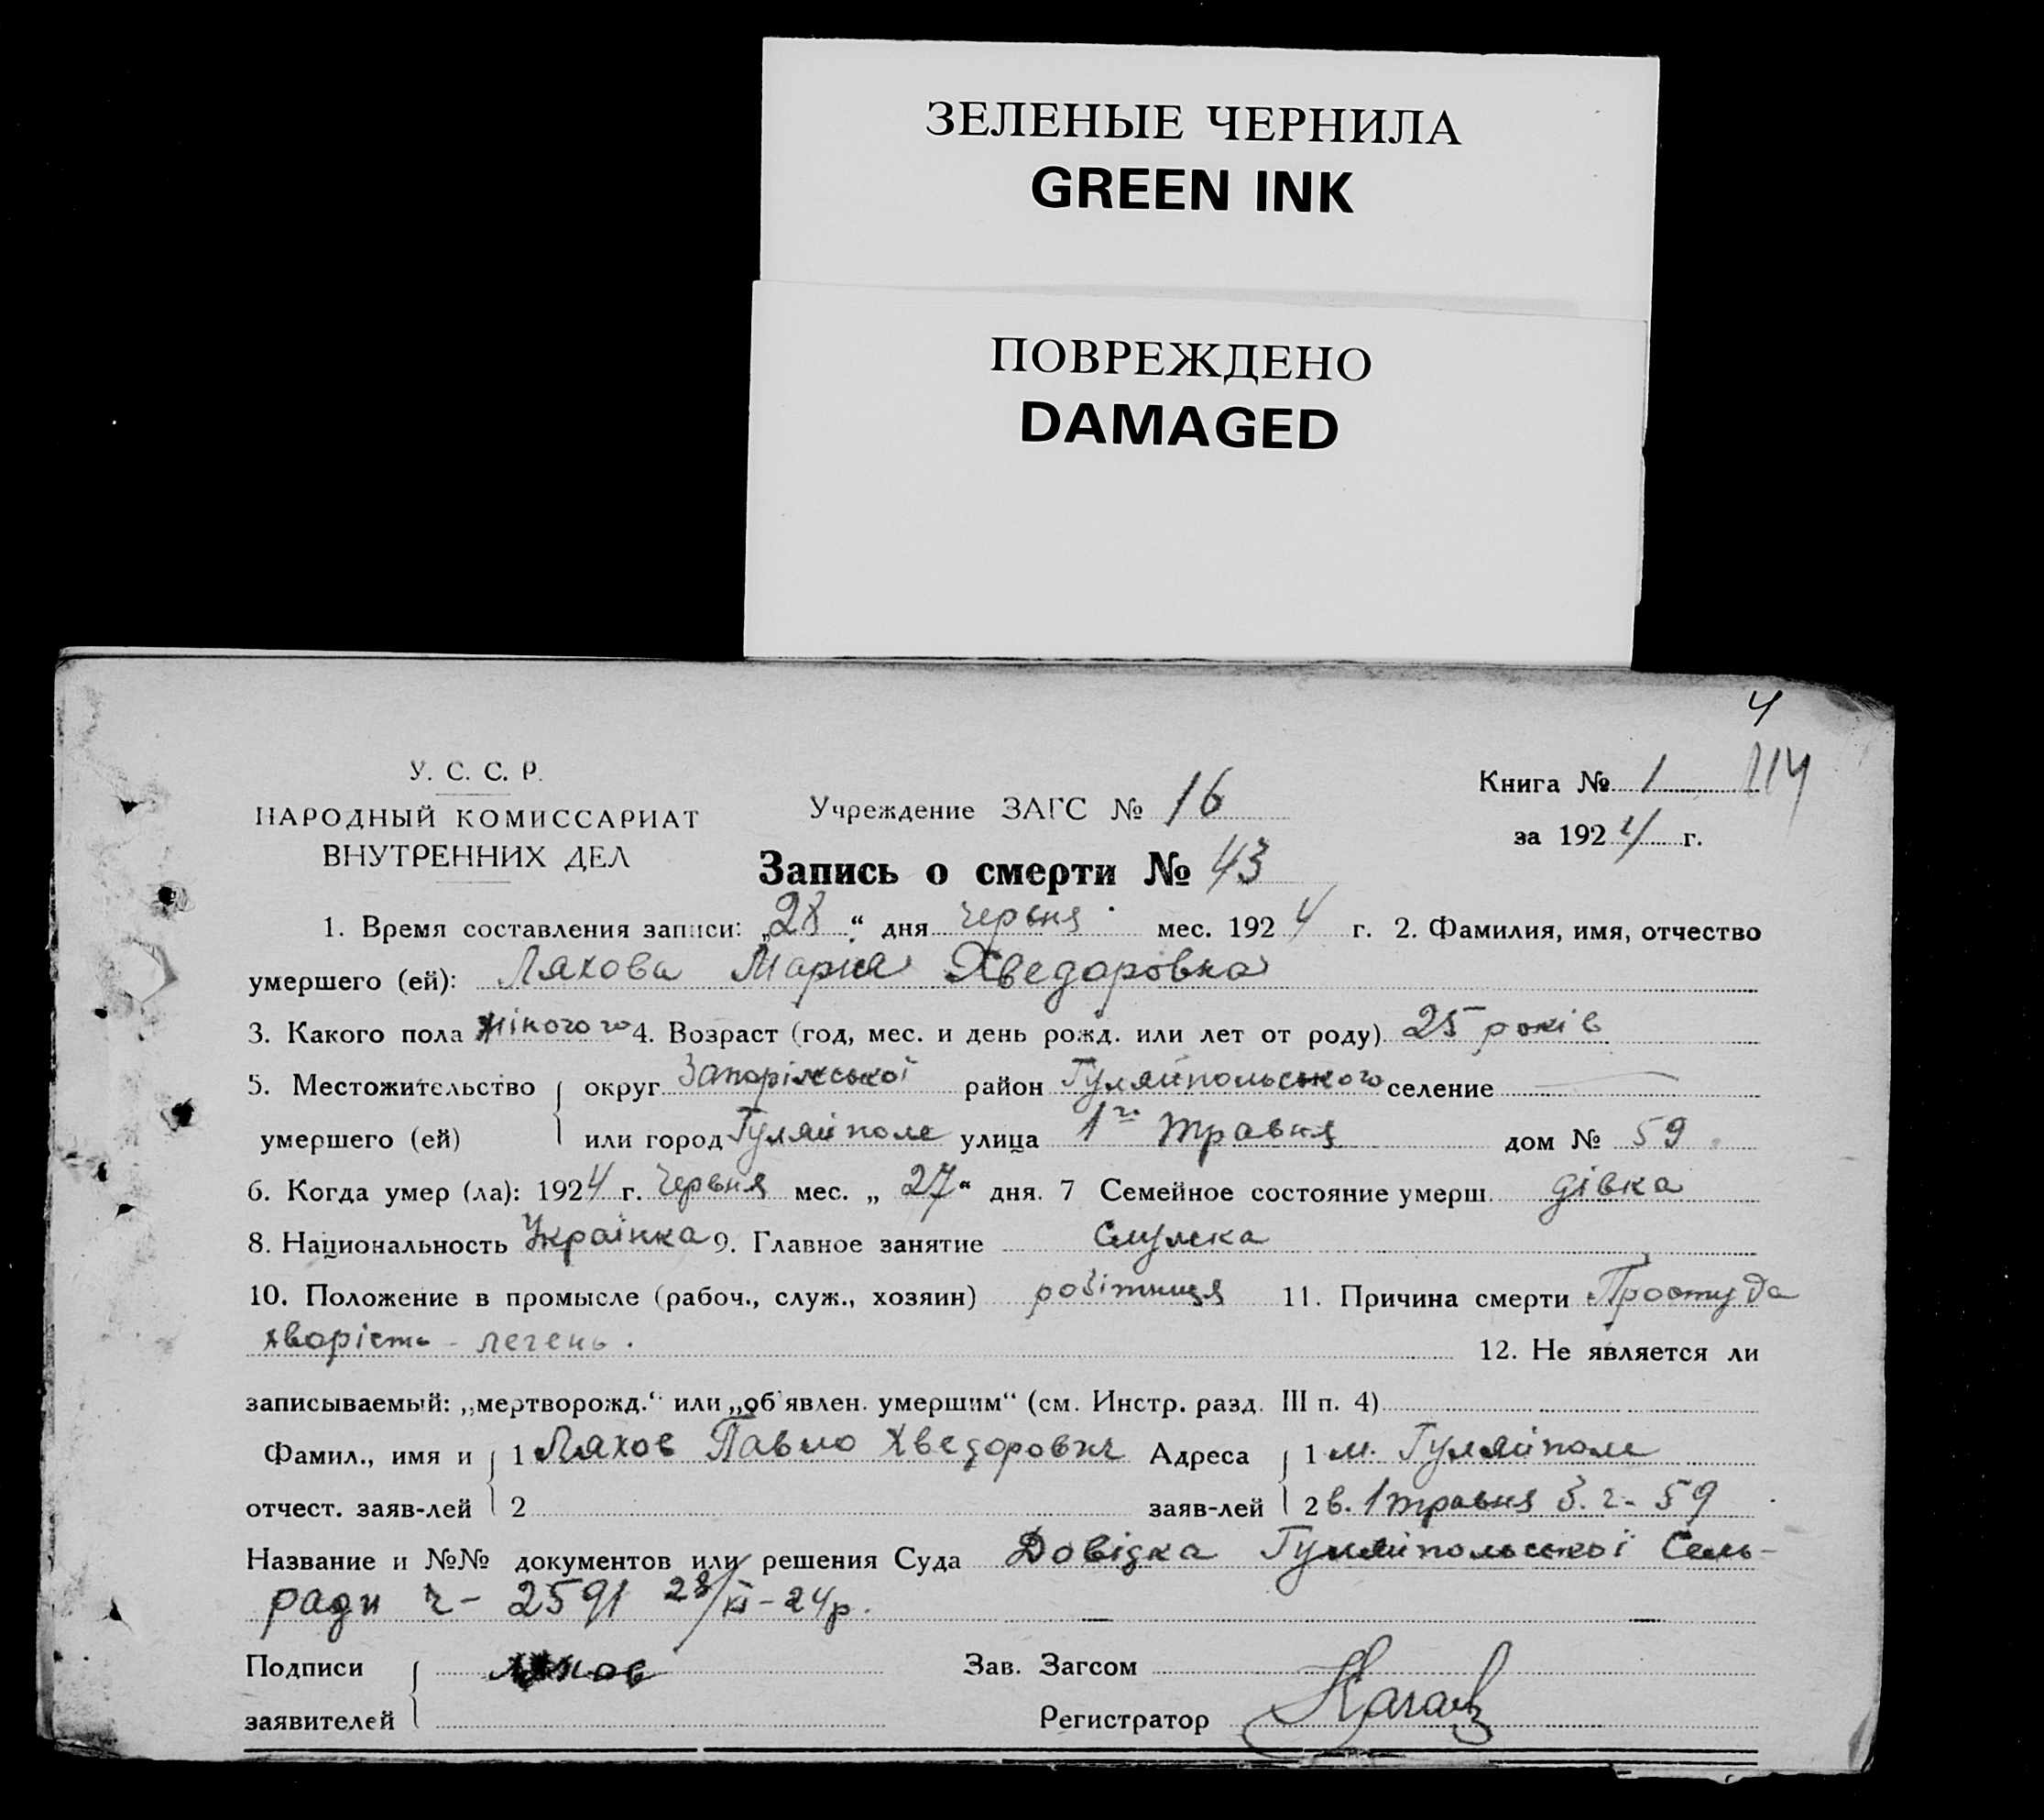 ЗЕЛЕНЫЕ ЧЕРНИЛА
GREEN INK
ПОВРЕЖДЕНО
DAMAGED
4
У. С. С. Р.
НАРОДНЫЙ КОМИССАРИАТ
ВНУТРЕННИХ ДЕЛ
Учреждение ЗАГС № 16
Книга № 1 114
за 1924 г.
Запись о смерти № 43
1. Время составления записи: „28“ дня червня мес. 1924 г. 2. Фамилия, имя, отчество
умершего (ей): Ляхова Мария Хведоровна
3. Какого пола жіночого 4. Возраст (год, мес. и день рожд. или лет от роду) 25 років
5. Местожительство округ Запоріжської район Гуляйпольського селение
умершего (ей) или город Гуляйполе улица 1го травня дом № 59
6. Когда умер (ла): 1924 г. Червня мес. „ 27“ дня. 7 Семейное состояние умерш. дівка
8. Национальность Українка 9. Главное занятие
10. Положение в промысле (рабоч., служ., хозяин) робітниця 11. Причина смерти Простуда
хворість - легень.
12. Не является ли
записываемый: „мертворожд.“ или „об'явлен. умершим“ (см. Инстр. разд. III п. 4)
Фамил., имя и 1 Ляхов Павло Хведорович Адреса 1 м. Гуляйполе
отчест. заяв-лей 2 заяв-лей 2 в. 1 травня б. ч. 59
Название и №№ документов или решения Суда Довідка Гуляйпольської Сель-
ради ч - 2591 28/VI - 24р.
Подписи Ляхов Зав. Загсом
заявителей Регистратор